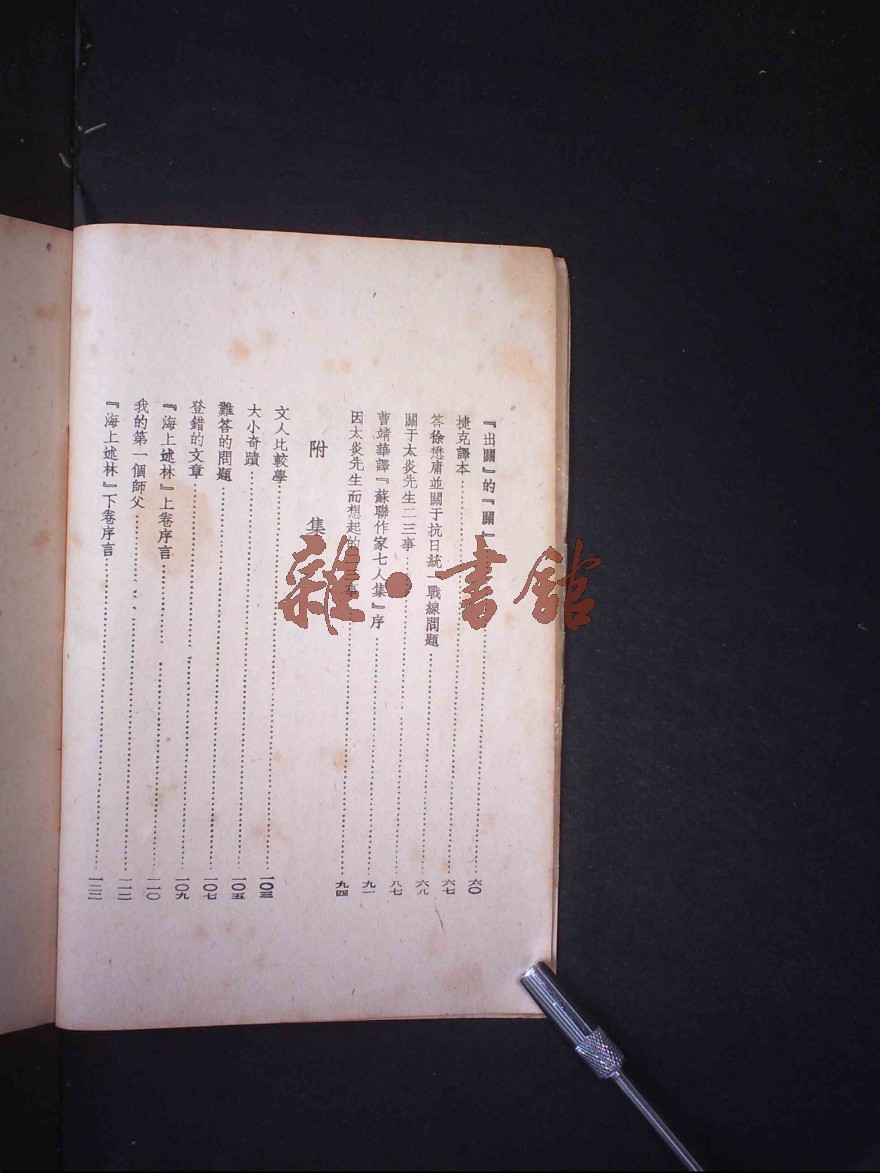 『出關』的『關』……六〇
捷克譯本……六七
答徐懋庸並關于抗日統一戰線問題……六八
關于太炎先生二三事……八七
曹靖華譯『蘇聯作家七人集』序……九一
因太炎先生而想起的二三事……九四
附集
文人比較學……一〇三
大小奇蹟……一〇五
難答的問題……一〇七
登錯的文章……一〇九
『海上述林』上卷序言……一一〇
我的第一個師父……一一二
『海上述林』下卷序言……一二二
雜·書館